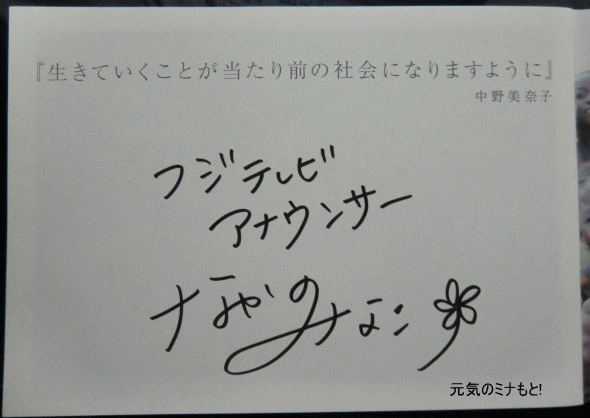 『生きていくことが当たり前の社会になりますように』
中野美奈子
フジテレビ
アナウンサー
なかのみなこ
元気のミナもと!